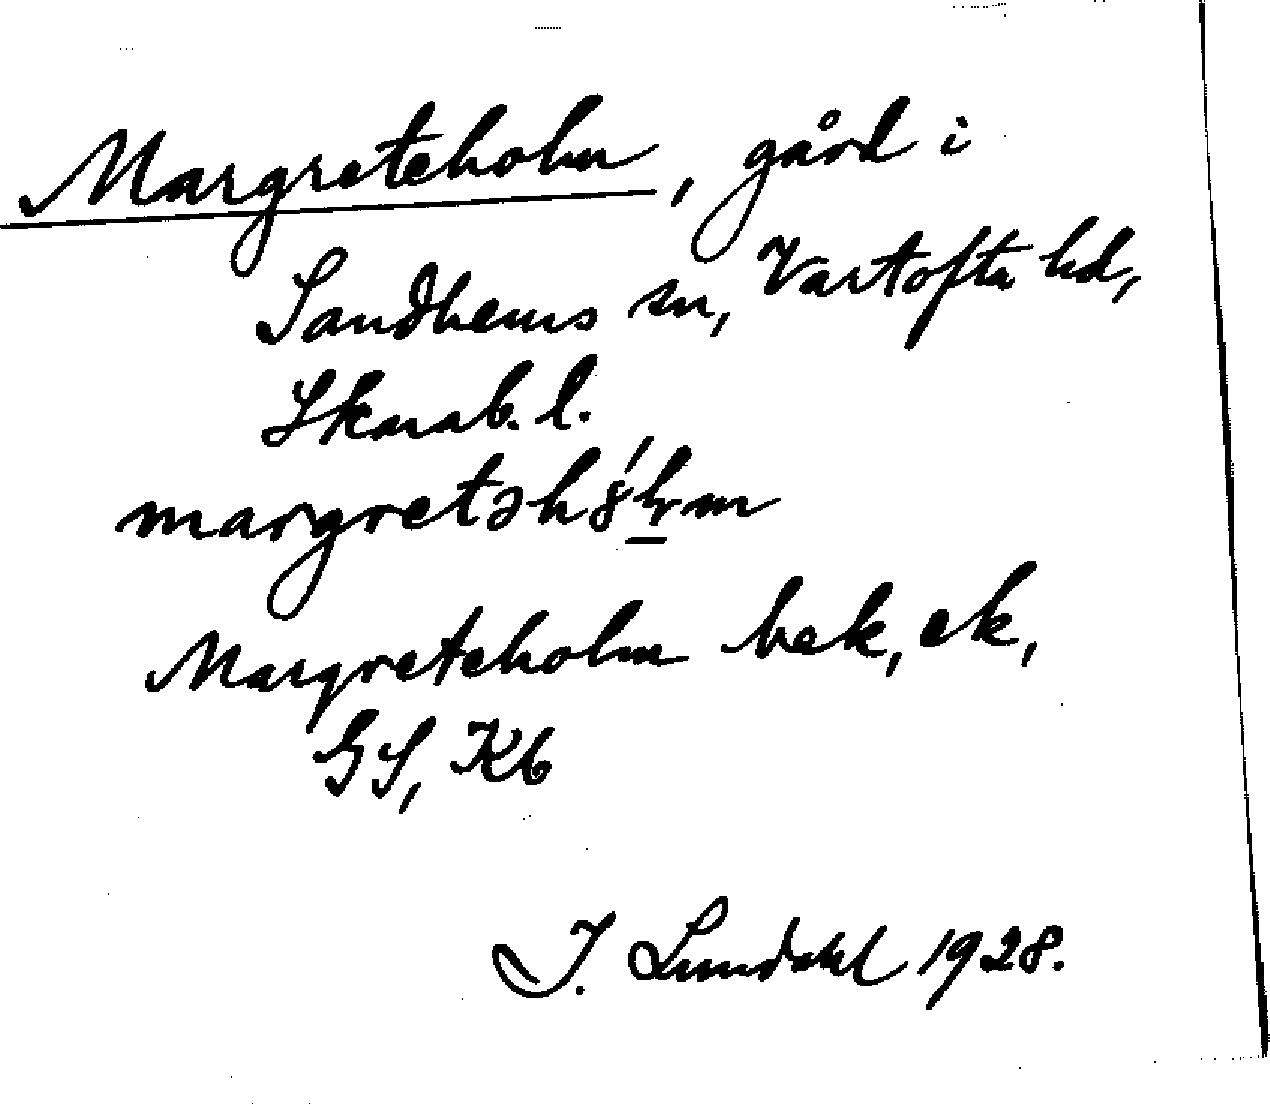 Margreteholm, gård i
Sandhems sn, Vartofta hd,
Skarab. l.
margretəh8́ḻm
Margreteholm bek, ek,
GS, Kb
I. Lundahl 1928.